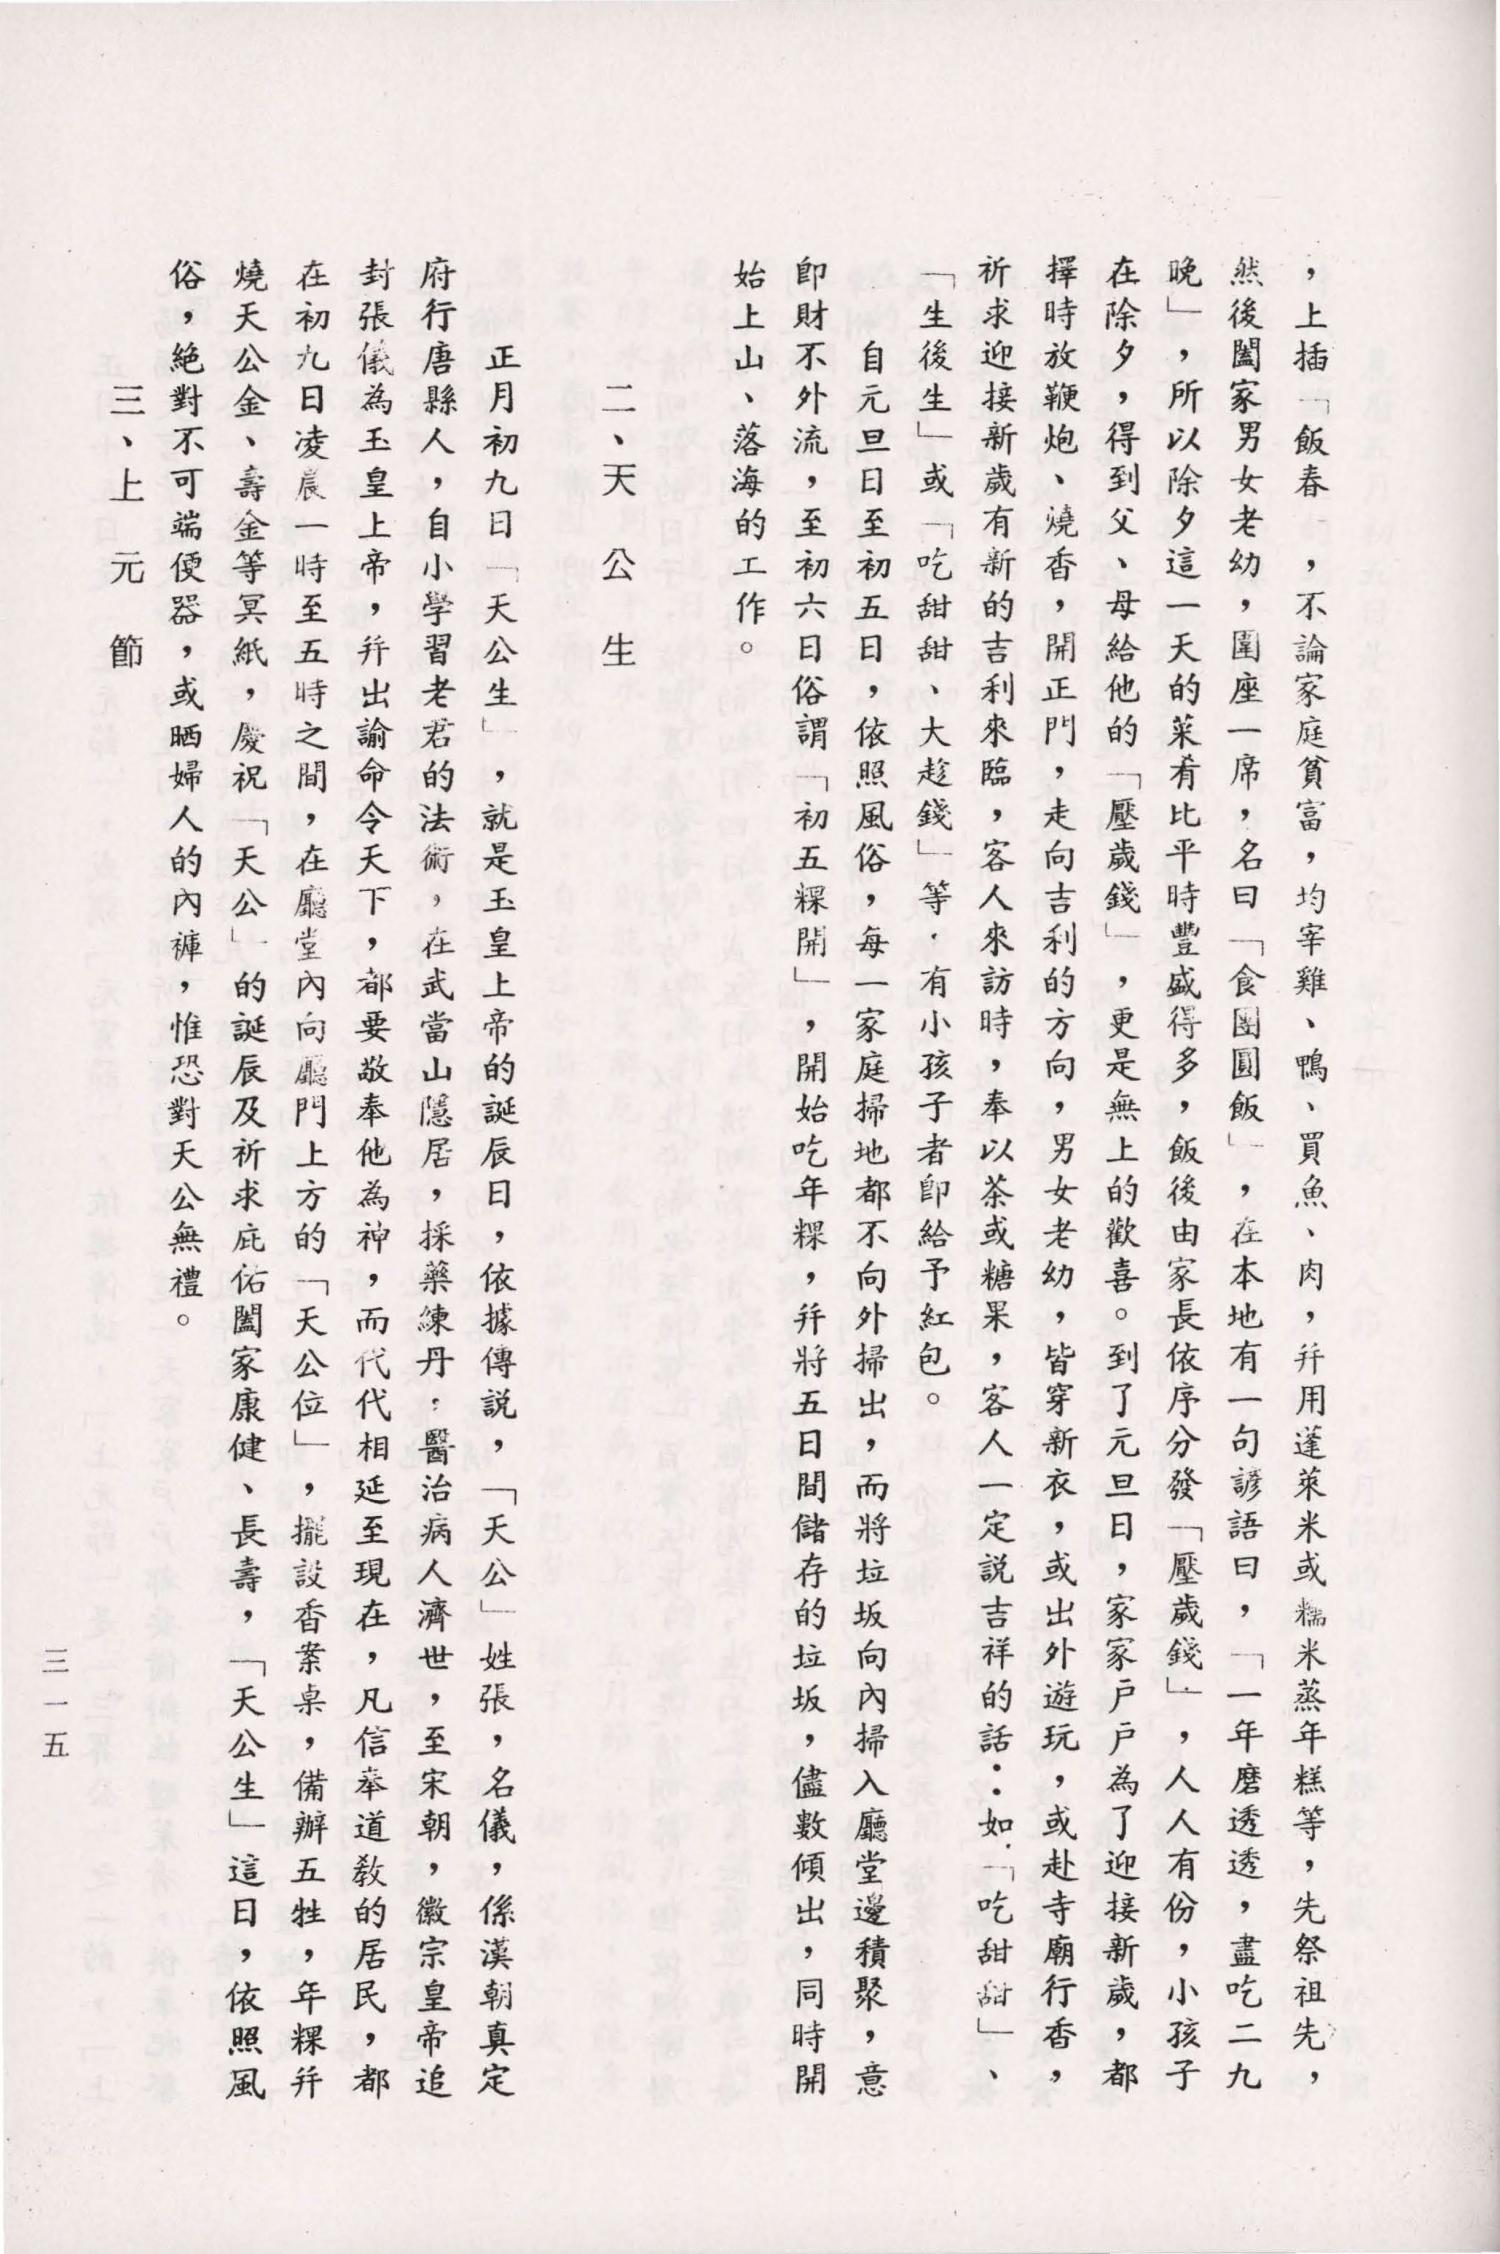 ，上插「飯春」，不論家庭貧富，均宰雞、鴨、買魚、肉，幷用蓬萊米或糯米蒸年糕等，先祭祖先，
然後闔家男女老幼，圍座一席，名曰「食團圓飯」，在本地有一句諺語曰，「一年磨透透，盡吃二九
晚」，所以除夕這一天的菜肴比平時豐盛得多，飯後由家長依序分發「壓歲錢」，人人有份，小孩子
在除夕，得到父、母給他的「壓歲錢」，更是無上的歡喜。到了元旦日，家家戶戶為了迎接新歲，都
擇時放鞭炮、燒香，開正門，走向吉利的方向，男女老幼，皆穿新衣，或出外遊玩，或赴寺廟行香，
祈求迎接新歲有新的吉利來臨，客人來訪時，奉以茶或糖果，客人一定説吉祥的話：如．「吃甜甜」、
「生後生」或「吃甜甜、大趁錢」等．有小孩子者卽給予紅包。
自元旦日至初五日，依照風俗，每一家庭掃地都不向外掃出，而將垃圾向內掃入廳堂邊積聚，意
卽財不外流，至初六日俗謂「初五粿開」，開始吃年粿，幷將五日間儲存的垃圾，儘數傾出，同時開
始上山、落海的工作。
二、天公生
正月初九日「天公生」，就是玉皇上帝的誕辰日，依據傳説，「天公」姓張，名儀，係漢朝真定
府行唐縣人，自小學習老君的法術，在武當山隱居，採藥練丹，醫治病人濟世，至宋朝，徽宗皇帝追
封張儀為玉皇上帝，幷出諭命令天下，都要敬奉他為神，而代代相延至現在，凡信奉道教的居民，都
在初九日凌晨一時至五時之間，在廳堂內向廳門上方的「天公位」，擺設香案桌，備辦五牲，年粿幷
燒天公金、壽金等冥紙，慶祝「天公」的誕辰及祈求庇佑闔家康健、長壽，「天公生」這日，依照風
俗，絕對不可端便器，或晒婦人的內褲，惟恐對天公無禮。
三、上元節
三一五